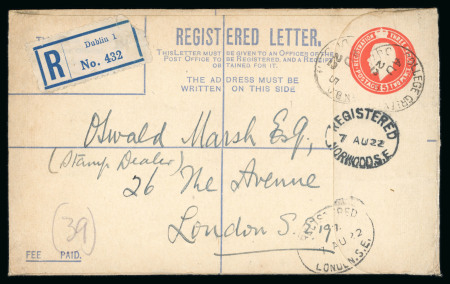 Dublin 1
R No. 432
REGISTERED LETTER.
THIS LETTER MUST BE GIVEN TO AN OFFICER OF THE
POST OFFICE TO BE REGISTERED, AND A RECEIPT
OBTAINED FOR IT.
THE ADDRESS MUST BE
WRITTEN ON THIS SIDE
COLLEGE GREEN
REGISTERED
7 AU 22
NORWOOD S.E.
Oswald Marsh Esq,
(Stamp Dealer)
26 The Avenue
London S.E. 19.
REGISTERED
AU 22
LONDON.S.E.
39
FEE PAID.